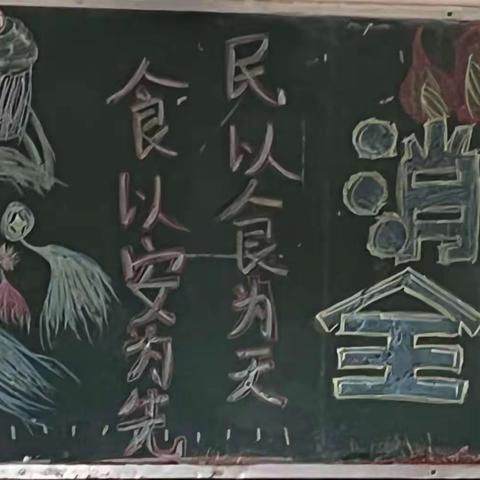 民以食为天
食以安为先
消
全